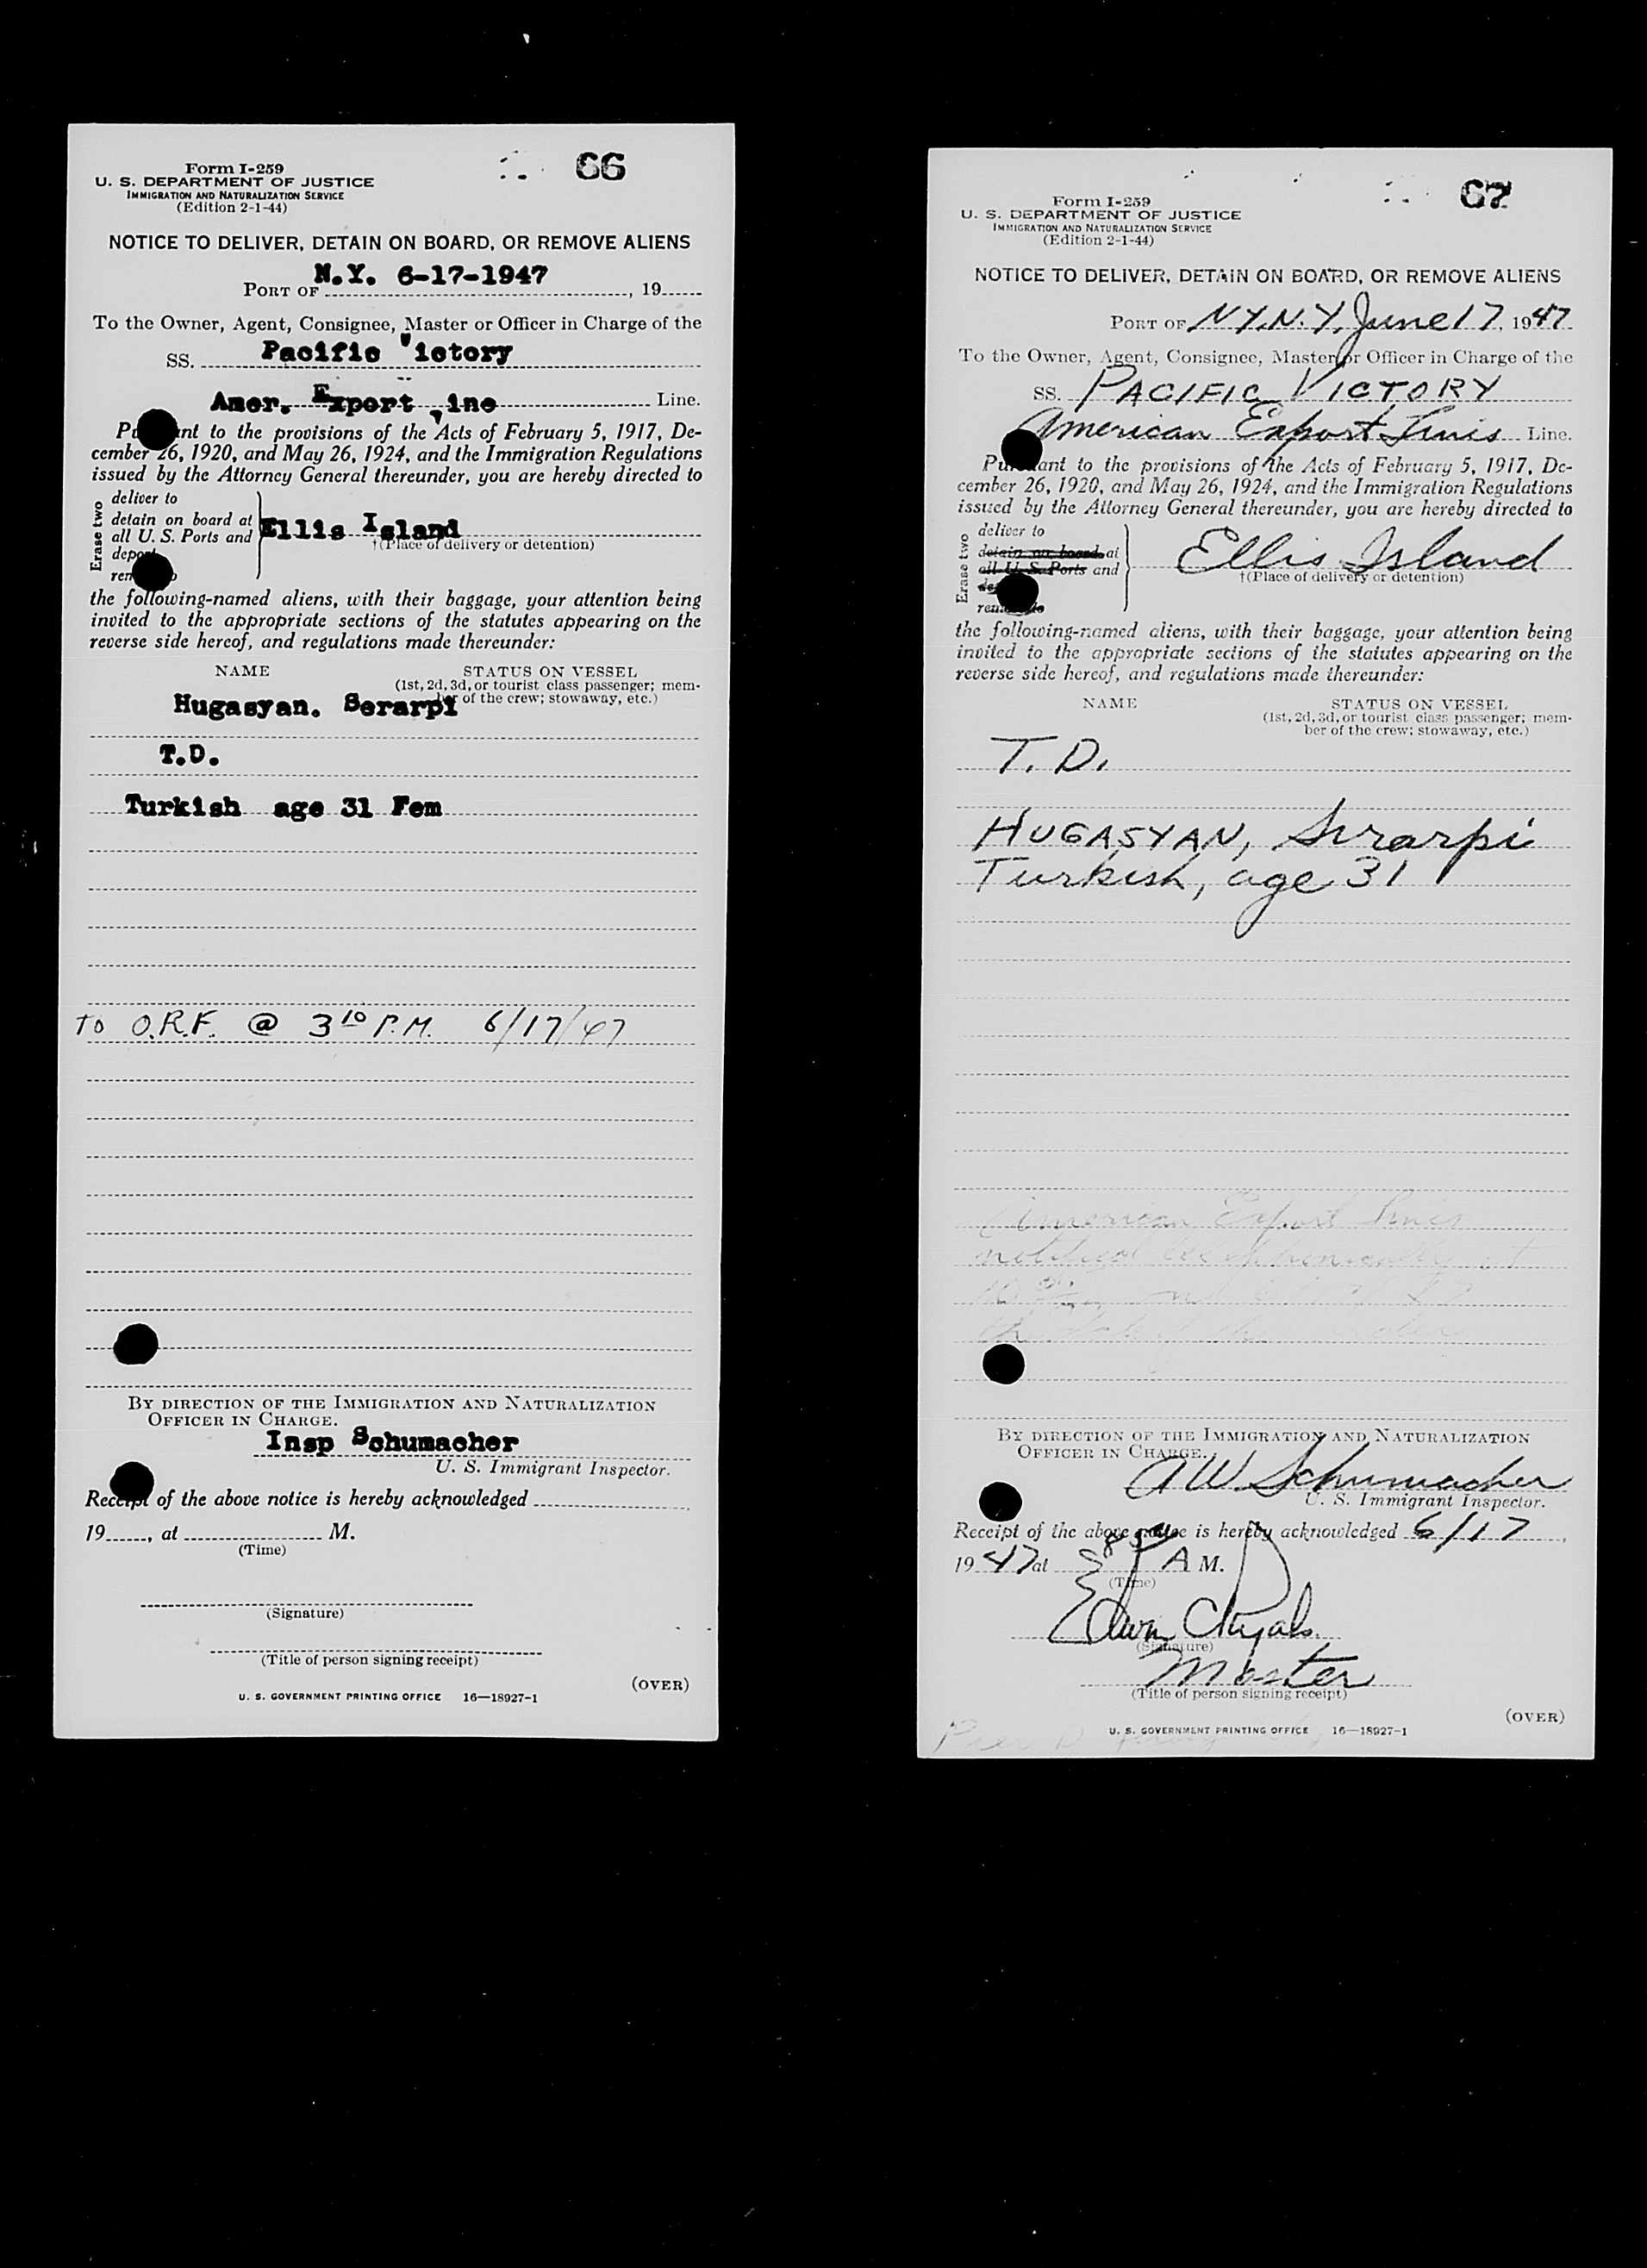 66
Form I-259
U. S. DEPARTMENT OF JUSTICE
IMMIGRATION AND NATURALIZATION SERVICE
(Edition 2-1-44)
NOTICE TO DELIVER, DETAIN ON BOARD, OR REMOVE ALIENS
PORT OF N.Y. 6-17-1947, 19
To the Owner, Agent, Consignee, Master or Officer in Charge of the
SS. Pacific Victory
Amer. Export Line Line.
Pursuant to the provisions of the Acts of February 5, 1917, De-
cember 26, 1920, and May 26, 1924, and the Immigration Regulations
issued by the Attorney General thereunder, you are hereby directed to
Erase two
deliver to
detain on board at
all U. S. Ports and
deport
remove to
Ellis Island
†(Place of delivery or detention)
the following-named aliens, with their baggage, your attention being
invited to the appropriate sections of the statutes appearing on the
reverse side hereof, and regulations made thereunder:
NAME STATUS ON VESSEL
(1st, 2d, 3d, or tourist class passenger; mem-
ber of the crew; stowaway, etc.)
Hugasyan. Serarpi
T.D.
Turkish age 31 Fem
TO O.R.F. @ 3 10 P.M. 6/17/47
BY DIRECTION OF THE IMMIGRATION AND NATURALIZATION
OFFICER IN CHARGE.
Insp Schumacher
U. S. Immigrant Inspector.
Receipt of the above notice is hereby acknowledged
19, at M.
(Time)
(Signature)
(Title of person signing receipt)
(OVER)
U. S. GOVERNMENT PRINTING OFFICE 16—18927-1
67
Form I-259
U. S. DEPARTMENT OF JUSTICE
IMMIGRATION AND NATURALIZATION SERVICE
(Edition 2-1-44)
NOTICE TO DELIVER, DETAIN ON BOARD, OR REMOVE ALIENS
PORT OF N.Y.N.Y. June 17, 1947
To the Owner, Agent, Consignee, Master or Officer in Charge of the
SS. PACIFIC VICTORY
American Export Lines Line.
Pursuant to the provisions of the Acts of February 5, 1917, De-
cember 26, 1920, and May 26, 1924, and the Immigration Regulations
issued by the Attorney General thereunder, you are hereby directed to
Erase two
deliver to
detain on board at
all U. S. Ports and
deport
remove to
Ellis Island
†(Place of delivery or detention)
the following-named aliens, with their baggage, your attention being
invited to the appropriate sections of the statutes appearing on the
reverse side hereof, and regulations made thereunder:
NAME STATUS ON VESSEL
(1st, 2d, 3d, or tourist class passenger; mem-
ber of the crew; stowaway, etc.)
T. D.
HUGASYAN, Srarpi
Turkish, age 31
American Export Lines
notified telephonically at
BY DIRECTION OF THE IMMIGRATION AND NATURALIZATION
OFFICER IN CHARGE.
A W Schumacher
U. S. Immigrant Inspector.
Receipt of the above notice is hereby acknowledged 6/17,
1947 at A M.
(Time)
Edwin
(Signature)
Master
(Title of person signing receipt)
(OVER)
U. S. GOVERNMENT PRINTING OFFICE 16—18927-1
Pier